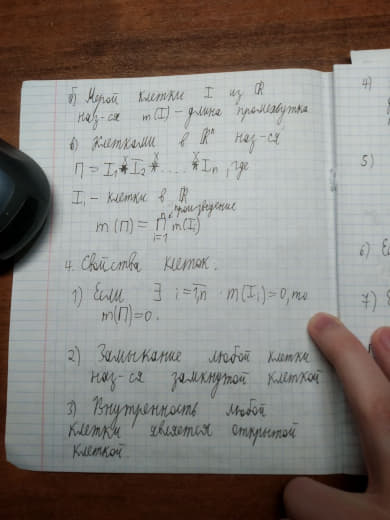 б) Мерой клетки I из ℝ
наз-ся m(I) - длина промежутка
в) Клетками в ℝⁿ наз-ся
П = I₁ × I₂ × .... × Iₙ, где
Iᵢ - клетки в ℝ
произведение
m(П) = ∏ᵢ₌₁ⁿ m(Iᵢ)
4. Свойства клеток.
1) Если ∃ i = 1,n m(Iᵢ) = 0, то
m(П) = 0.
2) Замыкание любой клетки
наз-ся замкнутой клеткой
3) Внутренность любой
клетки является открытой
клеткой.
4)
5)
6) Ес
7)